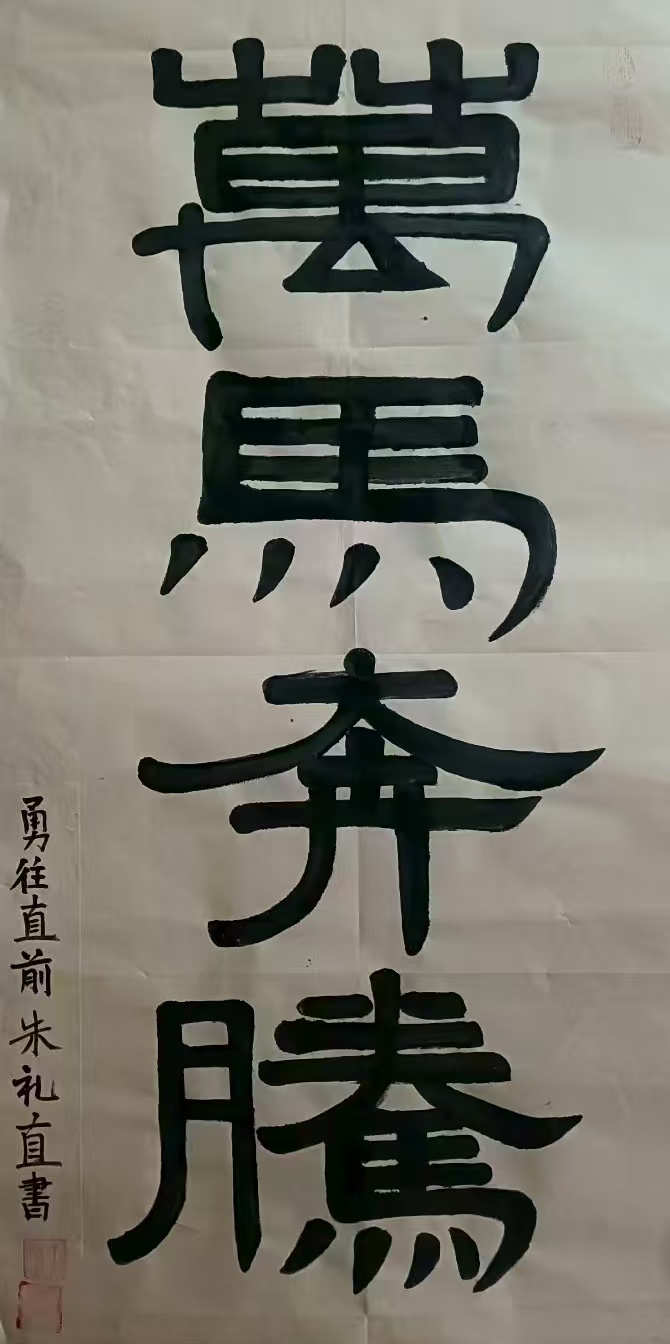 萬馬奔騰
勇往直前 朱礼直書